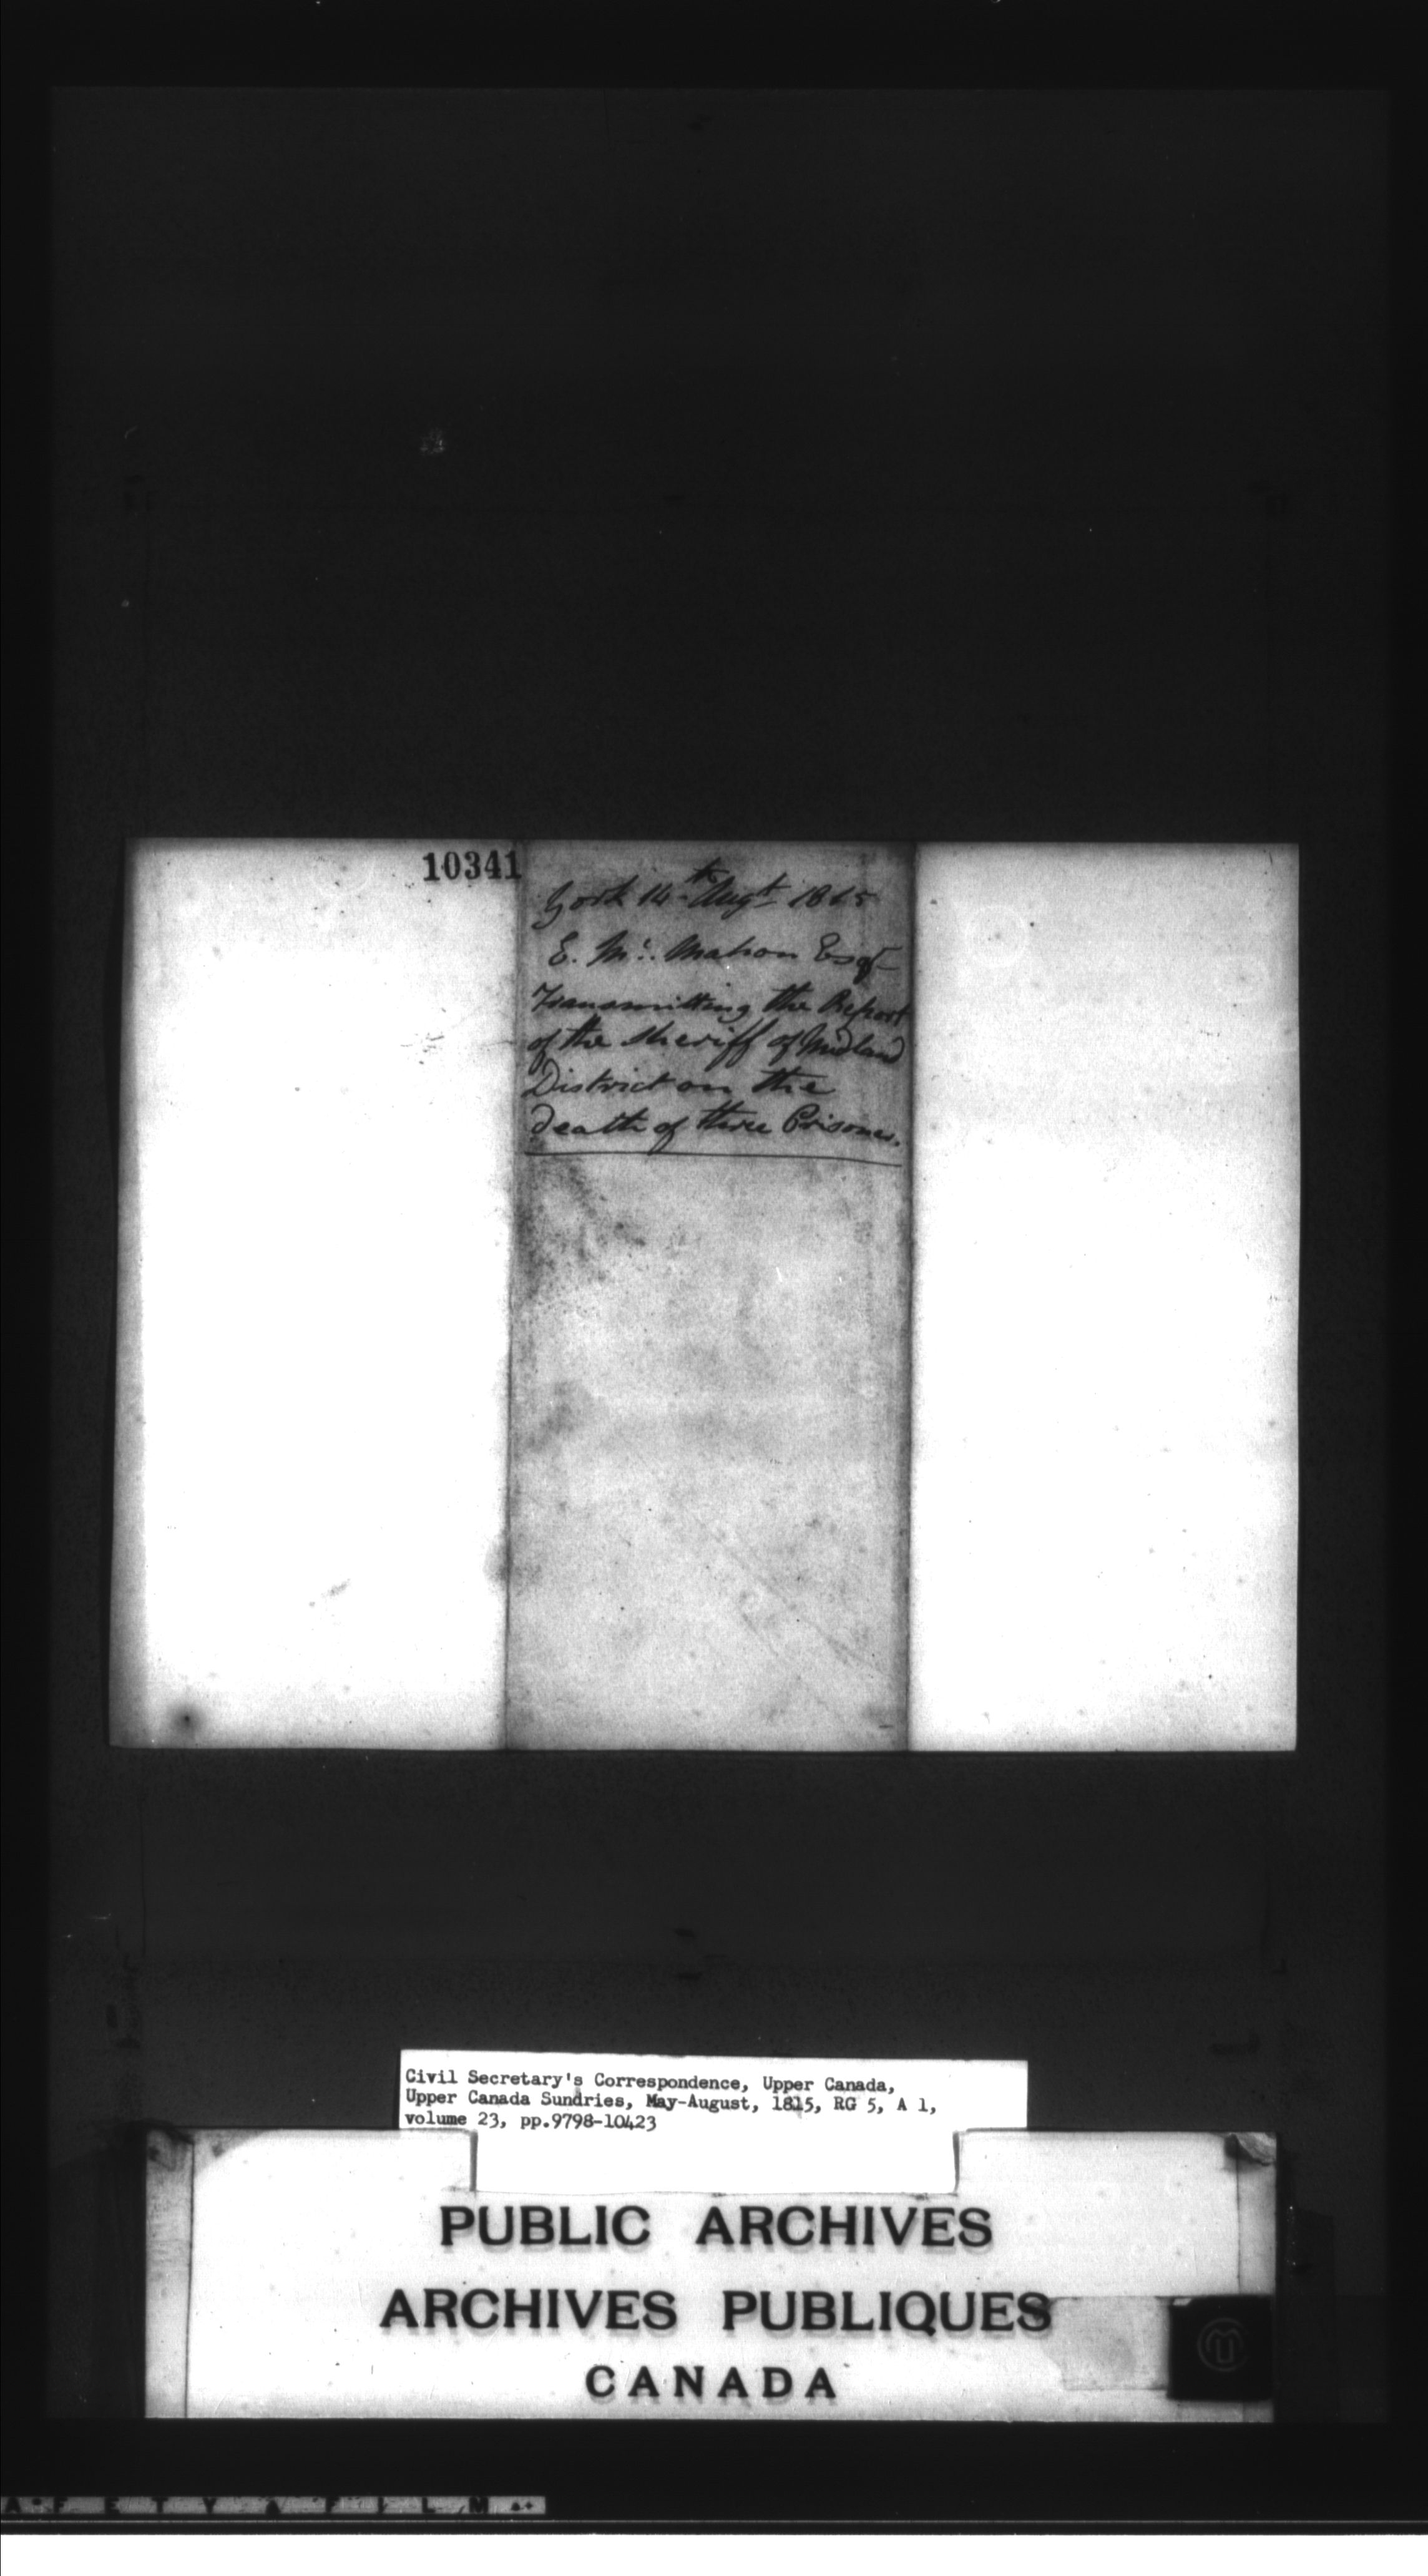 10341
York 14th Augt 1815
E. Mc. Mahon Esqr
Transmitting the Report
of the Sheriff of Midland
District on the
death of three Prisoners.
Civil Secretary's Correspondence, Upper Canada,
Upper Canada Sundries, May-August, 1815, RG 5, A 1,
volume 23, pp.9798-10423
PUBLIC ARCHIVES
ARCHIVES PUBLIQUES
CANADA